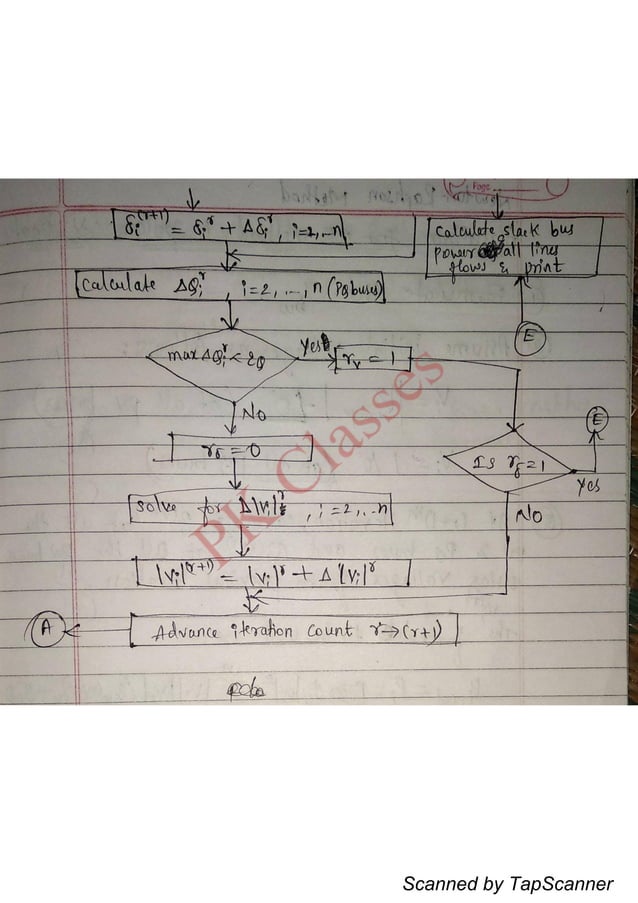 Page
δi^(r+1) = δi^r + Δδi^r, i=2,...n
Calculate slack bus
power all lines
flows & print
Calculate ΔQi^r, i=2, ..., n (PQ buses)
E
max ΔQi^r < εQ
Yes
rv = 1
No
E
rδ = 0
Is rδ = 1
Yes
Solve for Δ|Vi|^r, i=2,..n
NO
|Vi|^(r+1) = |Vi|^r + Δ|Vi|^r
A
Advance iteration count r→(r+1)
PK Classes
Scanned by TapScanner